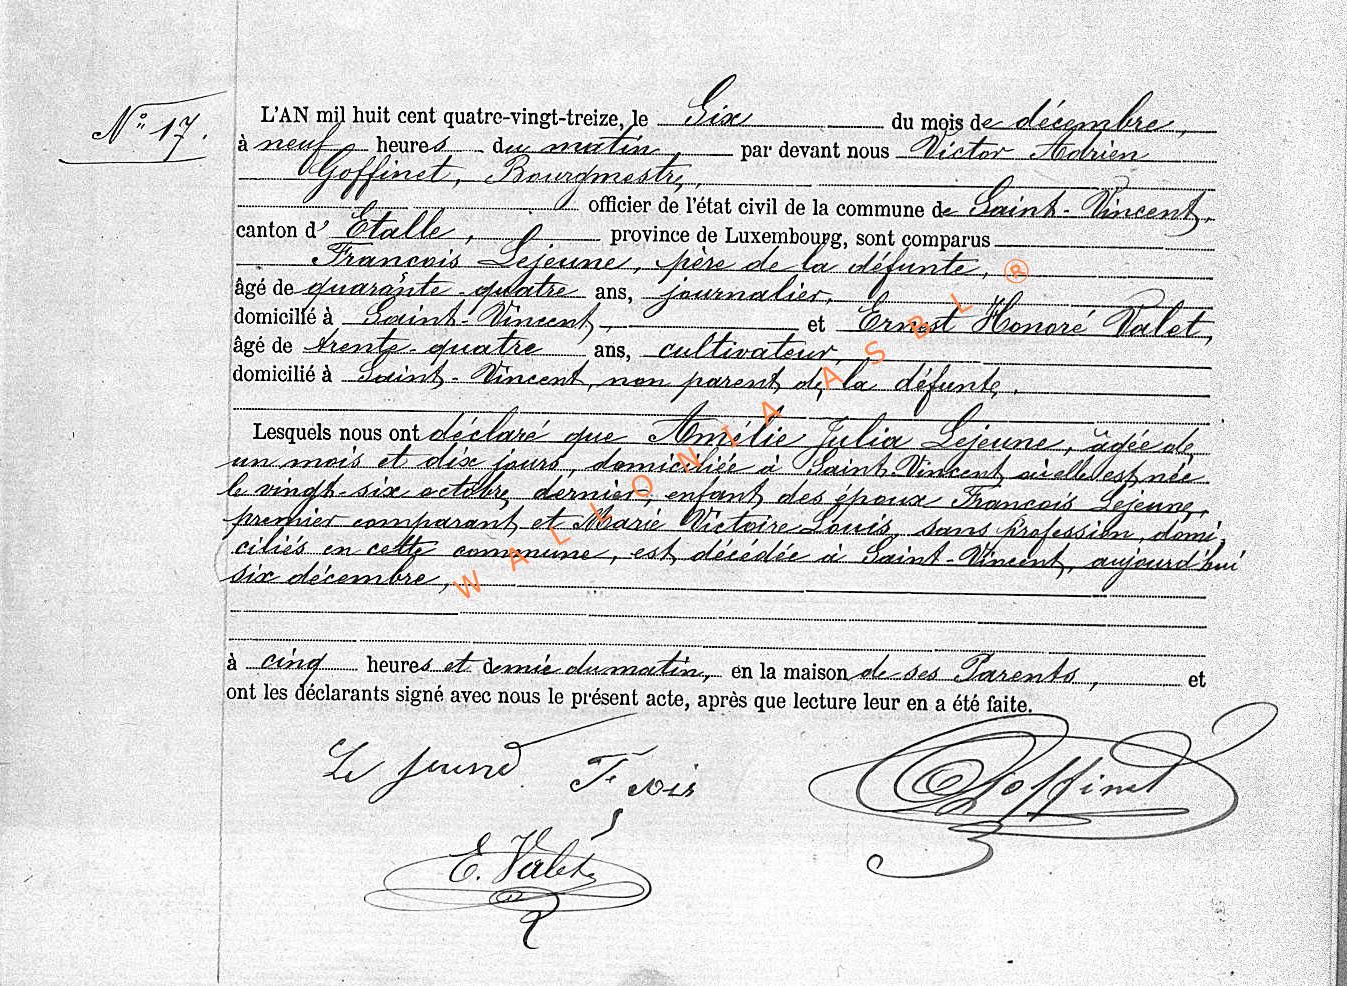 N° 17.
L'AN mil huit cent quatre-vingt-treize, le Six du mois de décembre,
à neuf heures du matin, par devant nous Victor Adrien
Goffinet, Bourgmestre,
officier de l'état civil de la commune de Saint-Vincent,
canton d' Etalle, province de Luxembourg, sont comparus
François Lejeune, père de la défunte,
âgé de quarante-quatre ans, journalier,
domicilié à Saint-Vincent, et Ernest Honoré Valet,
âgé de trente-quatre ans, cultivateur,
domicilié à Saint-Vincent, non parent de la défunte,
Lesquels nous ont déclaré que Amélie Julia Lejeune, âgée de
un mois et dix jours, domiciliée à Saint-Vincent où elle est née
le vingt-six octobre dernier, enfant des époux François Lejeune,
premier comparant et Marie Victoire Louis, sans profession, domi-
ciliés en cette commune, est décédée à Saint-Vincent, aujourd'hui
six décembre,
à cinq heures et demie du matin, en la maison de ses Parents, et
ont les déclarants signé avec nous le présent acte, après que lecture leur en a été faite.
Le jeune Goffinet
E. Valet
WALLONIA ASBL ®